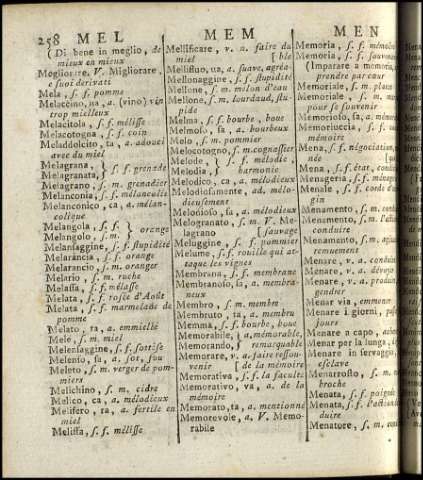 258 MEL MEM MEN
(Di bene in meglio, de
mieux en mieux
Megliorare, V. Migliorare,
e suoi derivati
Mela, ſ. f. pomme
Melaceino, na, a (vino) vin
trop mielleux
Melacitola, ſ. f. mélisse
Melacotogna, ſ. f. coin
Meladdolcito, ta, a adouci
avec du miel
Melagrana, }
Melagranata, } ſ. f. grenade
Melagrano, ſ. m. grenadier
Melanconia, ſ. f. mélancolie
Melanconico, ca, a mélan-
colique
Melangola, ſ. f. }
Melangolo, ſ. m. } orange
Melanſaggine, ſ. f. stupidité
Melarancia, ſ. f. orange
Melarancio, ſ. m. oranger
Melario, ſ. m. ruche
Melaſſa, ſ. f. mélasse
Melata, ſ. f. roſée d'Août
Melata, ſ. f. marmelade de
pomme
Melato, ta, a emmiellé
Mele, ſ. m. miel
Melenſaggine, ſ. f. ſottiſe
Melenſo, ſa, a ſot, fou
Meleto, ſ. m. verger de pom-
miers
Melichino, ſ. m. cidre
Melico, ca, a mélodieux
Melifero, ra, a fertile en
miel
Meliſſa, ſ. f. mélisse
Mellificare, v. a. faire du
miel [ble
Mellifluo, ua, a. ſuave, agréa-
Mellonaggine, ſ. f. ſtupidité
Mellone, ſ. m. melon d'eau
Mellone, ſ. m. lourdaud, ſtu-
pide
Melma, ſ. f. bourbe, boue
Melmoſo, ſa, a. bourbeux
Melo, ſ. m. pommier
Melocotogno, ſ. m. cognaſſier
Melode, } ſ. f. mélodie,
Melodia, } harmonie
Melodico, ca, a. mélodieux
Melodioſamente, ad. mélo-
dieuſement
Melodioſo, ſa, a. mélodieux
Melogranato, ſ. m. V. Me-
lagrano [ſauvage
Meluggine, ſ. f. pommier
Melume, ſ. f. rouille qui at-
taque les vignes
Membrana, ſ. f. membrane
Membranoſo, ſa, a. membra-
neux
Membro, ſ. m. membre
Membruto, ta, a. membru
Memma, ſ. f. bourbe, boue
Memorabile, } a. mémorable,
Memorando, } remarquable
Memorare, v. a. faire reſſou-
venir [de la mémoire
Memorativa, ſ. f. la faculté
Memorativo, va, a. de la
mémoire
Memorato, ta, a. mentionné
Memorevole, a. V. Memo-
rabile
Memoria, ſ. f. mémoire
Memoria, ſ. f. ſouvenir
(Imparare a memoria,
prendre par cœur
Memoriale, ſ. m. placet
Memoriale, ſ. m.
pour ſe ſouvenir
Memorioſo, ſa, a.
Memoriuccia, ſ. f.
mémoire
Mena, ſ. f. négociation,
née [
Mena, ſ. f. état, condit
Menageria, ſ. f.
Menale, ſ. f. corde d'
gin
Menamento, ſ. m.
Menamento, ſ. m.
conduire
Menamento, ſ. m. agi
remuement
Menare, v. a. condui
Menare, v. a.
Menare, v. a. produi
gendrer
Menar via, emmener
Menare i giorni, paſſ
jours
Menare a capo,
Menar per la lunga,
Menare in ſervaggio,
eſclave
Menarroſto, ſ. m.
broche
Menata, ſ. f. poigné
Menata, ſ. f. l'action
duire
Menatore, ſ. m.